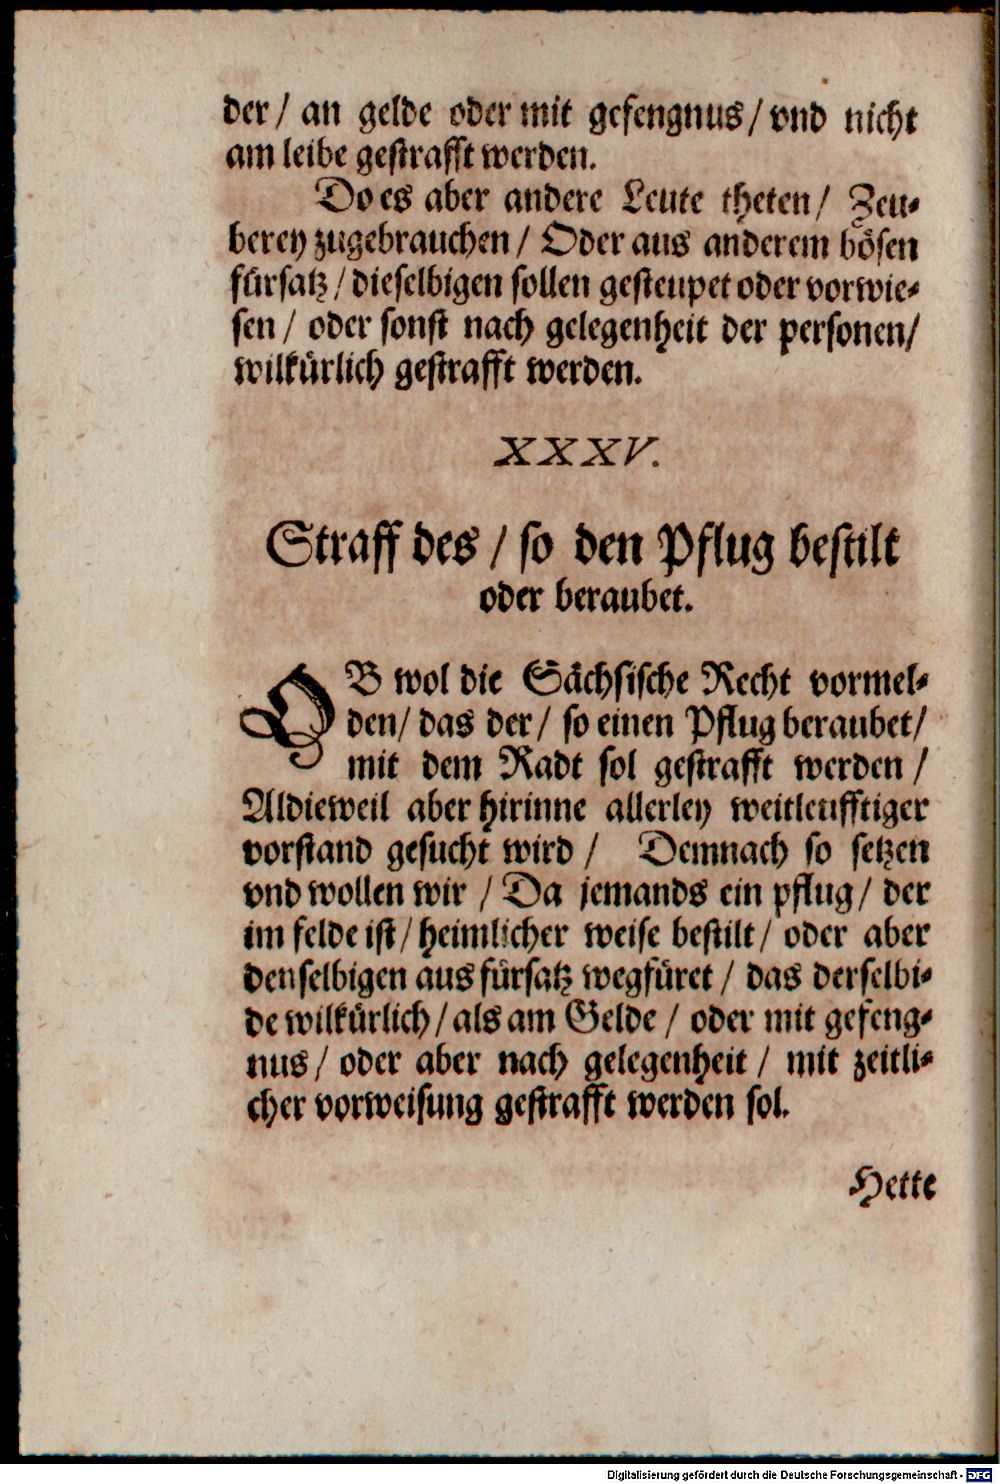 der/ an gelde oder mit gefengnus/ vnd nicht
am leibe gestrafft werden.
Do es aber andere Leute theten/ Zeu-
berey zugebrauchen/ Oder aus anderem bösen
fürsatz/ dieselbigen sollen gesteupet oder vorwie-
sen/ oder sonst nach gelegenheit der personen/
wilkürlich gestrafft werden.
XXXV.
Straff des/ so den Pflug bestilt
oder beraubet.
OB wol die Sächsische Recht vormel-
den/ das der/ so einen Pflug beraubet/
mit dem Radt sol gestrafft werden/
Aldieweil aber hirinne allerley weitleufftiger
vorstand gesucht wird/ Demnach so setzen
vnd wollen wir/ Da jemands ein pflug/ der
im felde ist/ heimlicher weise bestilt/ oder aber
denselbigen aus fürsatz wegfüret/ das derselbi-
de wilkürlich/ als am Gelde/ oder mit gefeng-
nus/ oder aber nach gelegenheit/ mit zeitli-
cher vorweisung gestrafft werden sol.
Hette
Digitalisierung gefördert durch die Deutsche Forschungsgemeinschaft - DFG